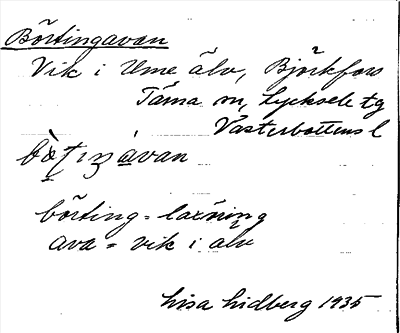 Börtingavan
Vik i Ume älv, Björkfors
Tärna sn, Lycksele tg
Västerbottens l
börting = laxöring
ava = vik i älv
Lisa Lidberg 1935